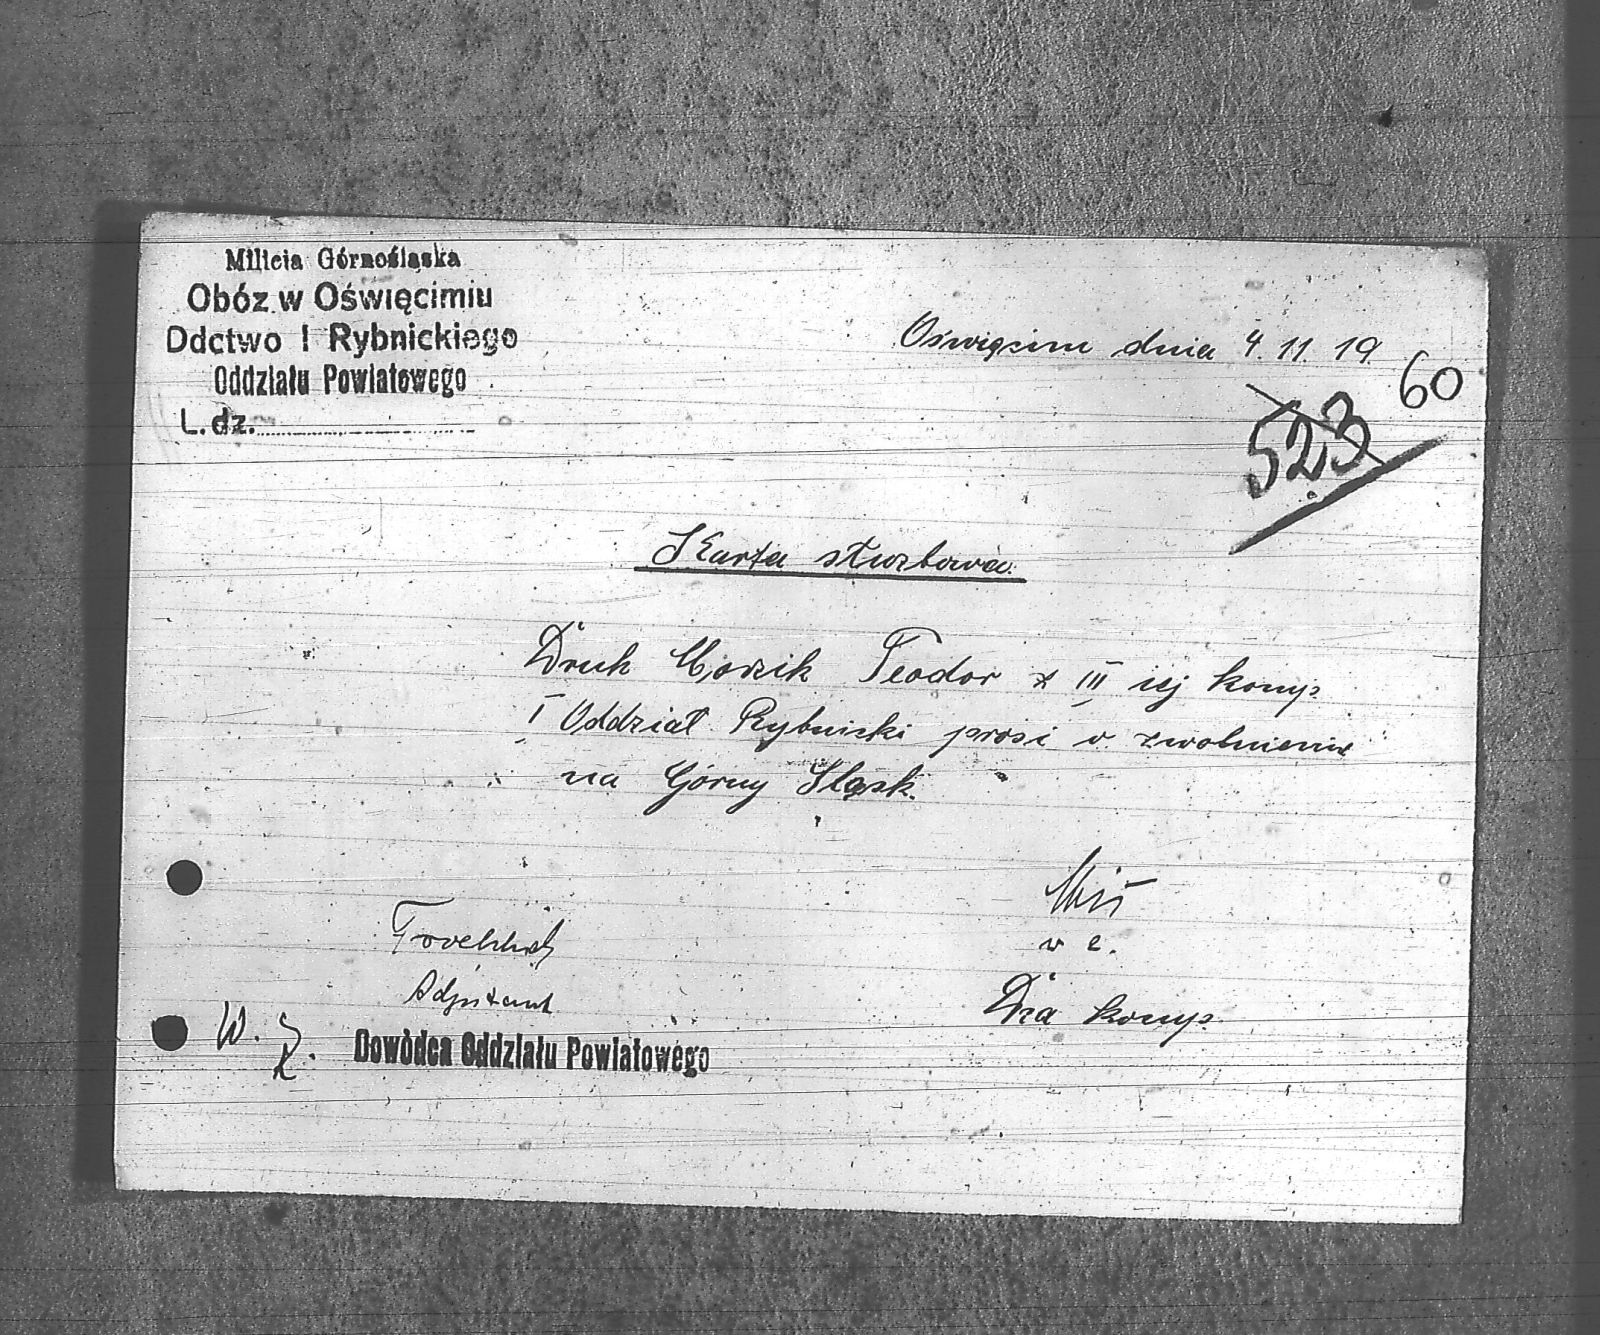 Milicia Górnośląska
Obóz w Oświęcimiu
Ddctwo I Rybnickiego
Oddziału Powiatowego
L. dz.
Oświęcim dnia 4. 11. 19
60
523
Karta służbowa.
Druh Teodor z III iej komp.
I Oddział Rybnicki prosi o zwolnienie
na Górny Śląsk.
Adjutant
W. Z.
Dowódca Oddziału Powiatowego
Miś
Dca komp.